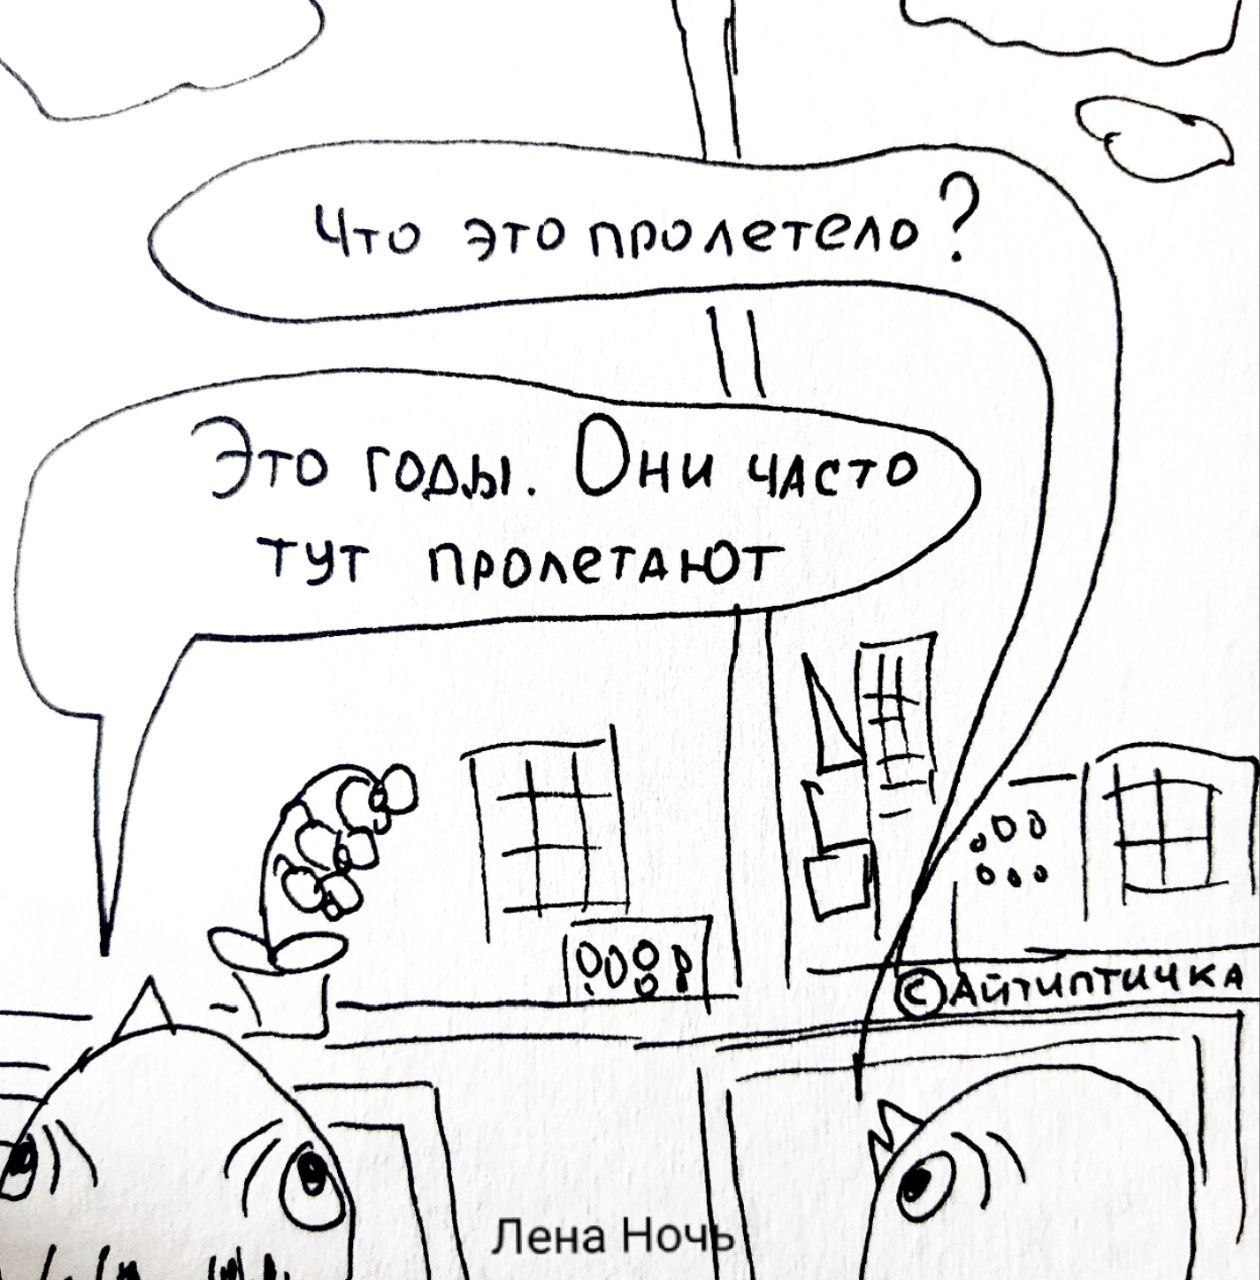 Что это пролетело?
Это годы. Они часто
тут пролетают
© Айтиптичка
Лена Ночь